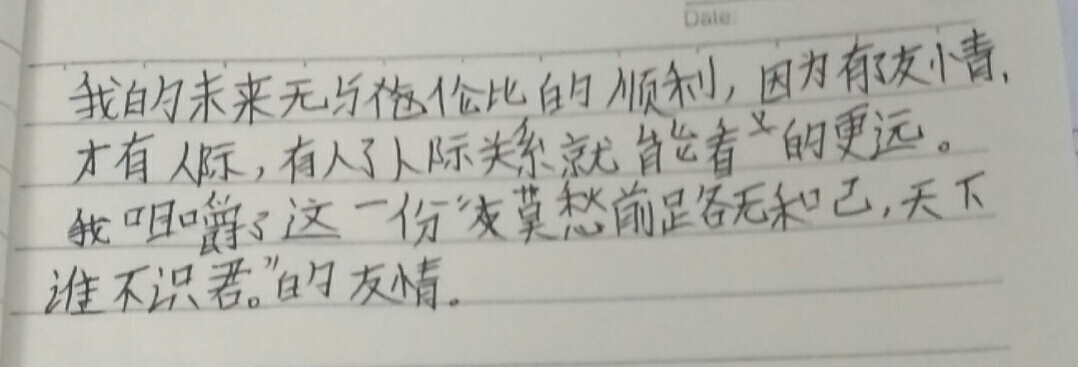 Date:
我的未来无与伦比的顺利，因为有了友情，
才有人际，有人了人际关系就能看的更远。
我咀嚼了这一份“莫愁前足各无和己，天下
谁不识君。”的友情。